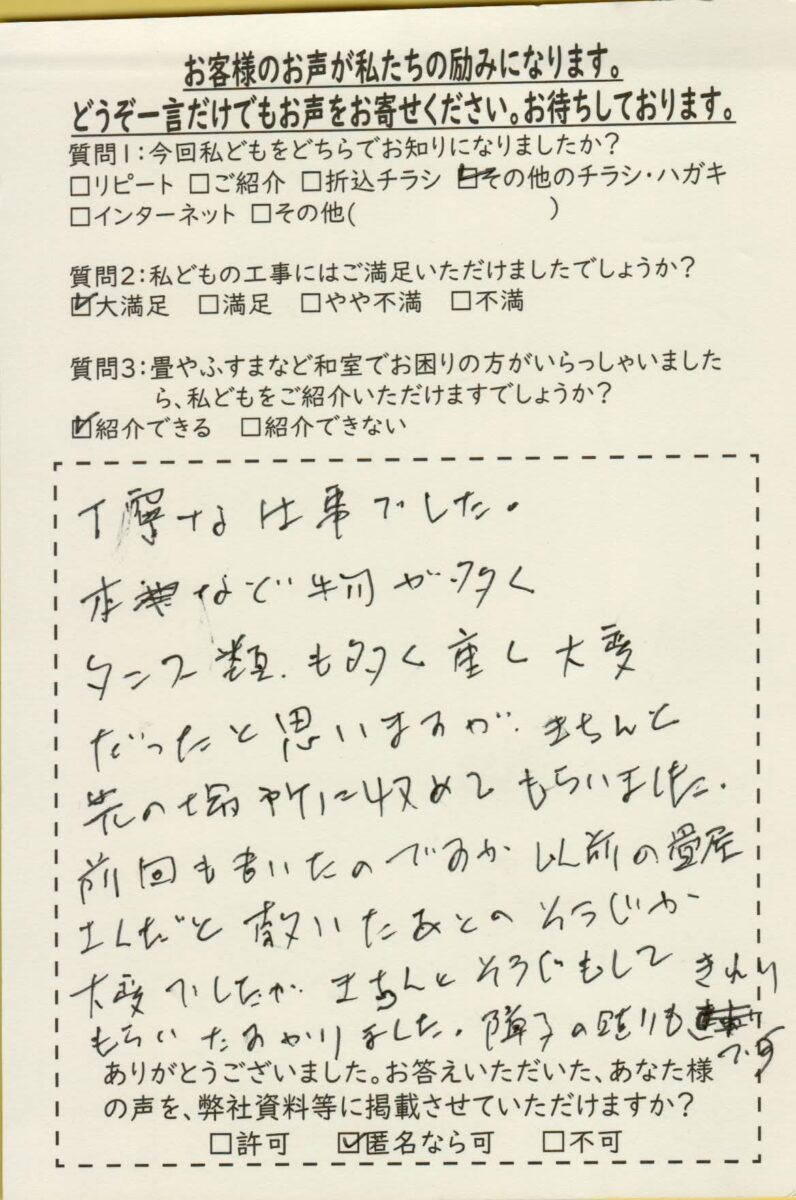 お客様のお声が私たちの励みになります。
どうぞ一言だけでもお声をお寄せください。お待ちしております。
質問1:今回私どもをどちらでお知りになりましたか?
□リピート □ご紹介 □折込チラシ ☑その他のチラシ・ハガキ
□インターネット □その他( )
質問2:私どもの工事にはご満足いただけましたでしょうか?
☑大満足 □満足 □やや不満 □不満
質問3:畳やふすまなど和室でお困りの方がいらっしゃいました
ら、私どもをご紹介いただけますでしょうか?
☑紹介できる □紹介できない
丁寧な仕事でした。
本など物が多く
タンス類も多く重く大変
だったと思いますが、きちんと
元の場所に収めてもらいました。
前回も書いたのですが以前の畳屋
さんだと敷いたあとのそうじが
大変でしたが、きちんとそうじもして
もらいたすかりました。障子の張りも きれい
です
ありがとうございました。お答えいただいた、あなた様
の声を、弊社資料等に掲載させていただけますか?
□許可 ☑匿名なら可 □不可